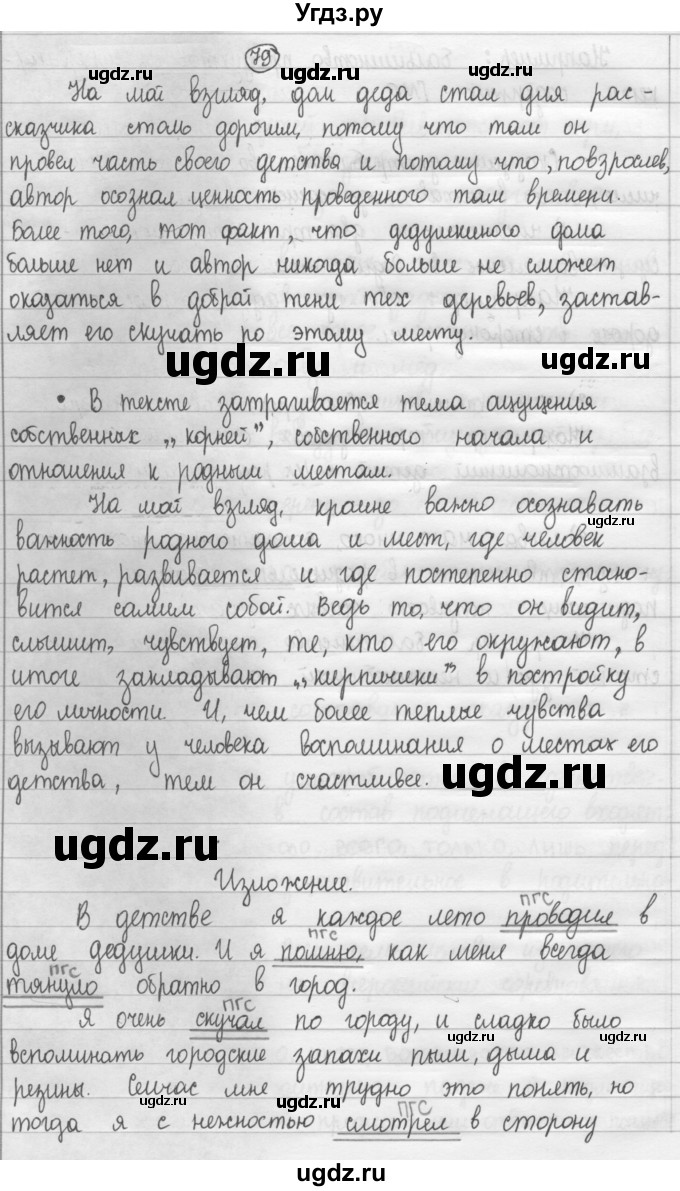 Угдз.ру
79
На мой взгляд, дом деда стал для рас-
сказчика столь дорогим, потому что там он
провел часть своего детства и потому что, повзрослев,
автор осознал ценность проведенного там времени.
Более того, тот факт, что дедушкиного дома
больше нет и автор никогда больше не сможет
оказаться в доброй тени тех деревьев, застав-
ляет его скучать по этому месту.
• В тексте затрагивается тема ощущения
собственных „корней", собственного начала и
отношения к родным местам.
На мой взгляд, крайне важно осознавать
важность родного дома и мест, где человек
растет, развивается и где постепенно стано-
вится самим собой. Ведь то, что он видит,
слышит, чувствует, те, кто его окружают, в
итоге закладывают „кирпичики" в постройку
его личности. И, чем более теплые чувства
вызывают у человека воспоминания о местах его
детства, тем он счастливее.
Изложение.
ПГС
В детстве я каждое лето проводил в
ПГС
доме дедушки. И я помню, как меня всегда
ПГС
тянуло обратно в город.
ПГС
Я очень скучал по городу, и сладко было
вспоминать городские запахи пыли, дыма и
резины. Сейчас мне трудно это понять, но
ПГС
тогда я с нежностью смотрел в сторону
ugdz.ru